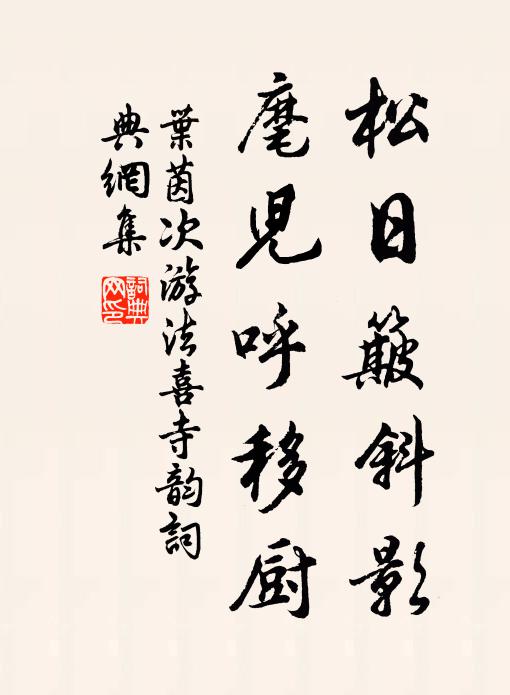 松日簸斜影
麾兒呼移厨
葉茵次游法喜寺韵詞
典網集
詞典网印